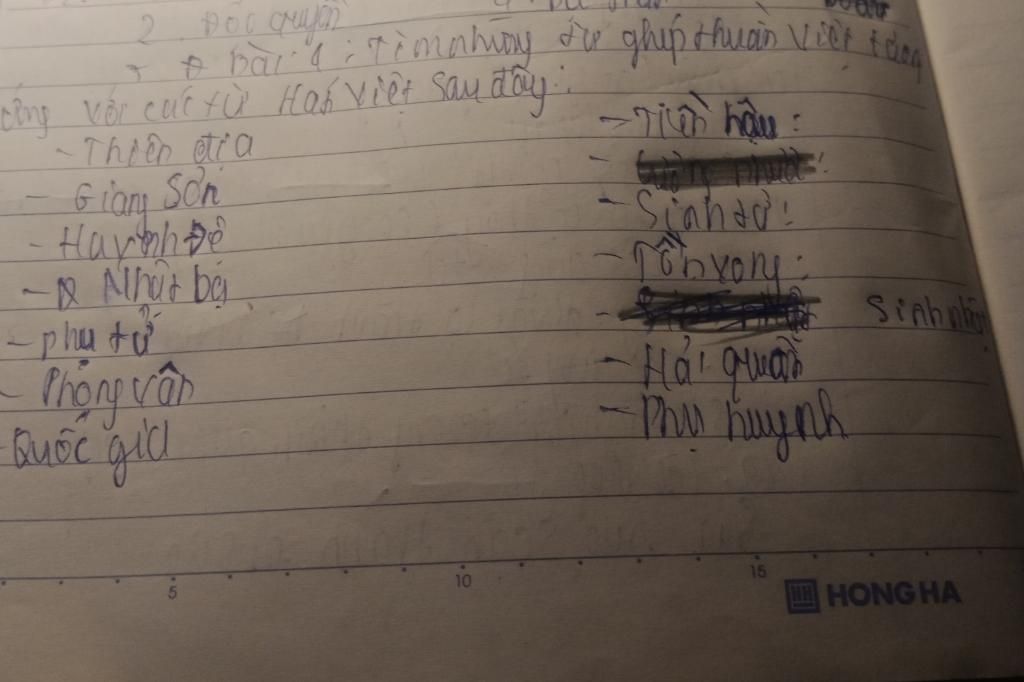 2. Độc quyền
Bài 4: Tìm những từ ghép thuần Việt tương
ứng với các từ Hán Việt sau đây:
- Thiên địa
- Giang Sơn
- Huynh Đệ
- Nhật bạ
- phụ tử
- Phong vân
- Quốc gia
- Tiền hậu:
-
- Sinh tử:
- Tồn vong:
- Sinh nhật
- Hải quân
- Phụ huynh
5 10 15
HONG HA